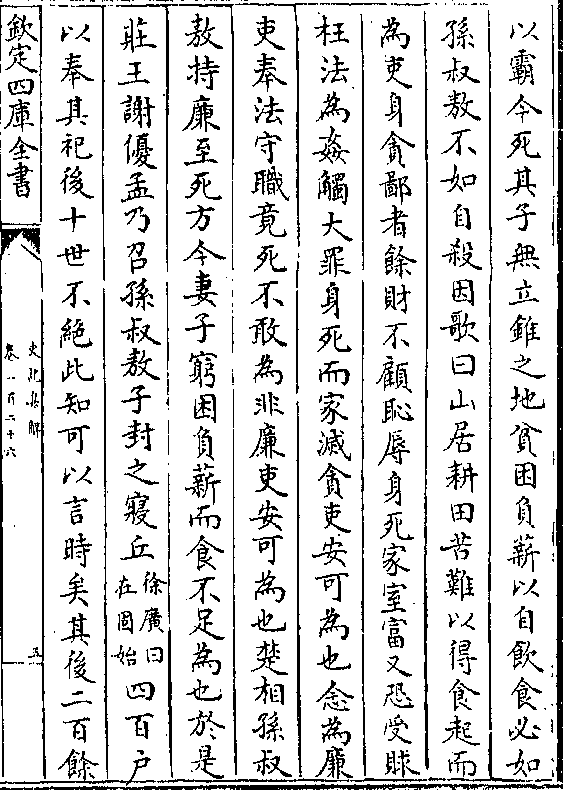 以霸今死其子無立錐之地貧困負薪以自飲食必如
孫叔敖不如自殺因歌曰山居耕田苦難以得食起而
為吏身貪鄙者餘財不顧恥辱身死家室富又恐受賕
枉法為姦觸大罪身死而家滅貪吏安可為也念為廉
吏奉法守職竟死不敢為非廉吏安可為也楚相孫叔
敖持廉至死方今妻子窮困負薪而食不足為也於是
莊王謝優孟乃召孫叔敖子封之寢丘徐廣曰在固始四百户
以奉其祀後十世不絕此知可以言時矣其後二百餘
欽定四庫全書
史記集解
卷一百二十六
五